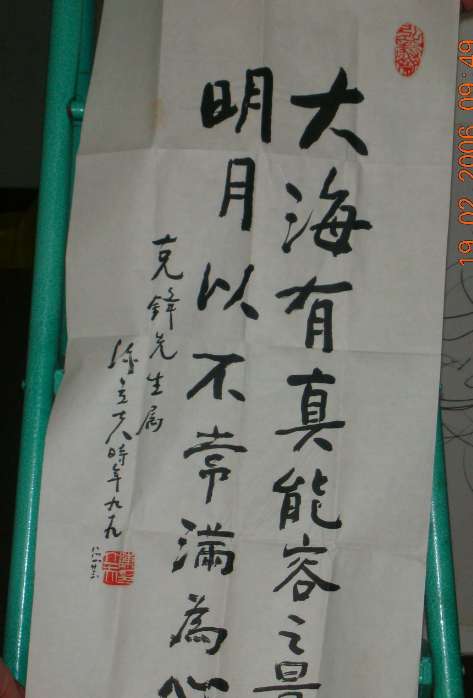 大海有真能容之量
明月以不常滿為心
克鋒先生属
陳立夫時年九九
19.02.2006 09:49